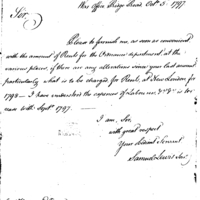 War Office Octr 5. 1797
Sir,
Please to furnish me, as soon as convenient
with the amount of Rents for the Ordnance department at the
various places, if there are any alterations since your last account
particularly what is to be charged for Rent at New London for
1798 — I have understood the expences of
with Septr 1797 —
I am, Sir,
with great respect
Your Obedient Servant
Samuel Lewis Junr